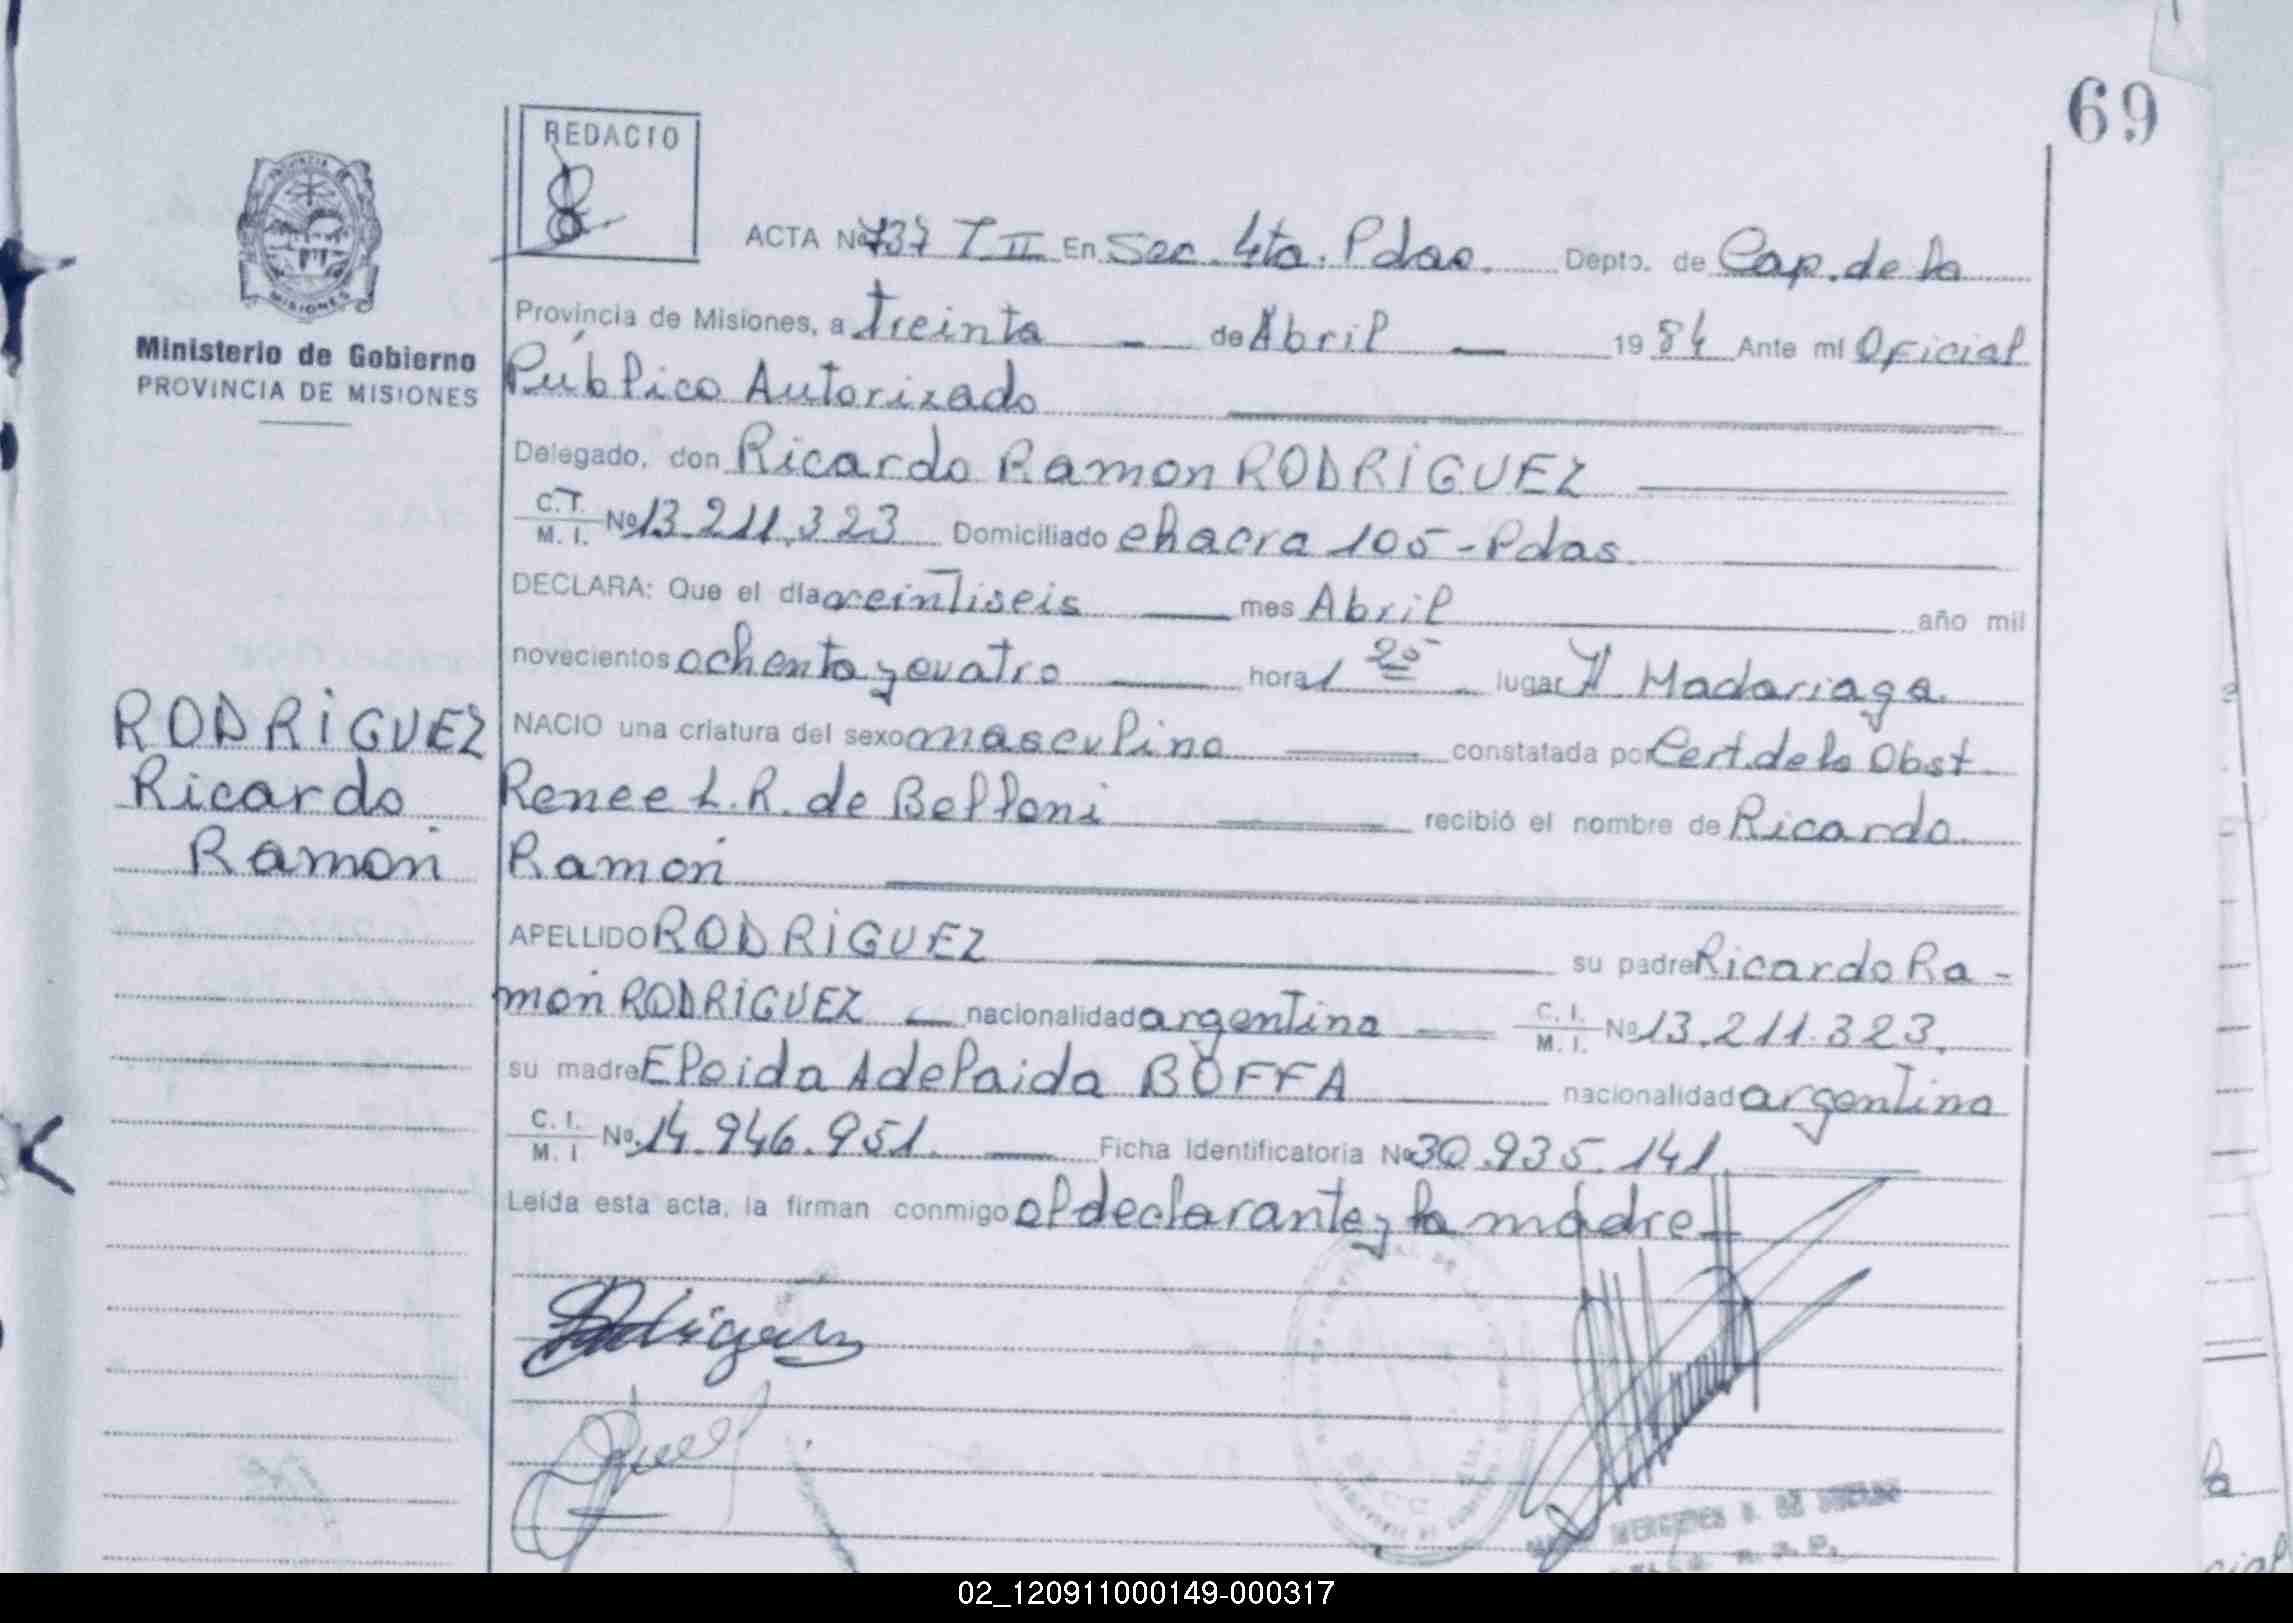 69
REDACTO
ACTA Nº 737 T II En Sec. 4ta. Pdas. Depto. de Cap. de la
Provincia de Misiones, a treinta — de Abril — 1984 Ante mí Oficial
Público Autorizado
Delegado, don Ricardo Ramon RODRIGUEZ
C.T. M. I. Nº 13.211.323 Domiciliado chacra 105 - Pdas.
DECLARA: Que el día veintiseis — mes Abril año mil
novecientos ochenta y cuatro — hora 1 25 lugar H Madariaga
NACIO una criatura del sexo masculino constatada por Cert. de la Obst
Renee L. R. de Belloni recibió el nombre de Ricardo
Ramón
APELLIDO RODRIGUEZ su padre Ricardo Ra-
món RODRIGUEZ — nacionalidad argentina — C. I. M. I. Nº 13.211.323.
su madre Eloida Adelaida BOFFA nacionalidad argentina
C. I. M. I Nº 14.946.951. Ficha Identificatoria Nº 30.935.141
Leída esta acta, la firman conmigo el declarante y la madre
MISIONES
Ministerio de Gobierno
PROVINCIA DE MISIONES
RODRIGUEZ
Ricardo
Ramón
02_120911000149-000317